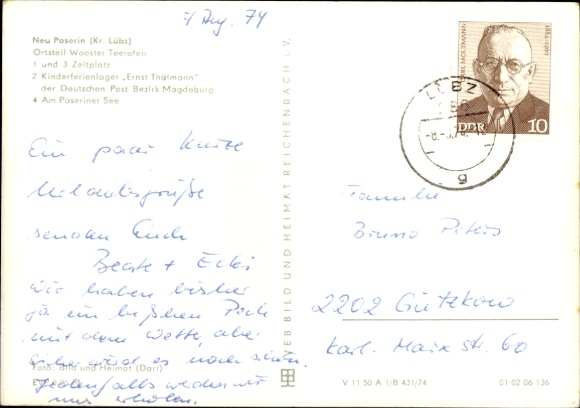 7 Aug. 74
Neu Poserin (Kr. Lübz)
Ortsteil Wooster Teerofen
1 und 3 Zeltplatz
2 Kinderferienlager „Ernst Thälmann"
der Deutschen Post Bezirk Magdeburg
4 Am Poseriner See
Ein paar kurze
Urlaubsgrüße
senden Euch
Beate +
Wir haben bisher
ja ein bißchen Pech
mit dem Wetter, aber
wird es noch schön.
Jedenfalls werden wir
uns erholen.
Foto: Bild und Heimat (Darr)
VEB BILD UND HEIMAT REICHENBACH i. V.
KARL MOLTMANN
1884-1960
DDR 10
LÜBZ
g
Familie
Bruno Peters
2202 Gützkow
Karl-Marx str. 60
V 11 50 A 1/B 431/74
01 02 06 136